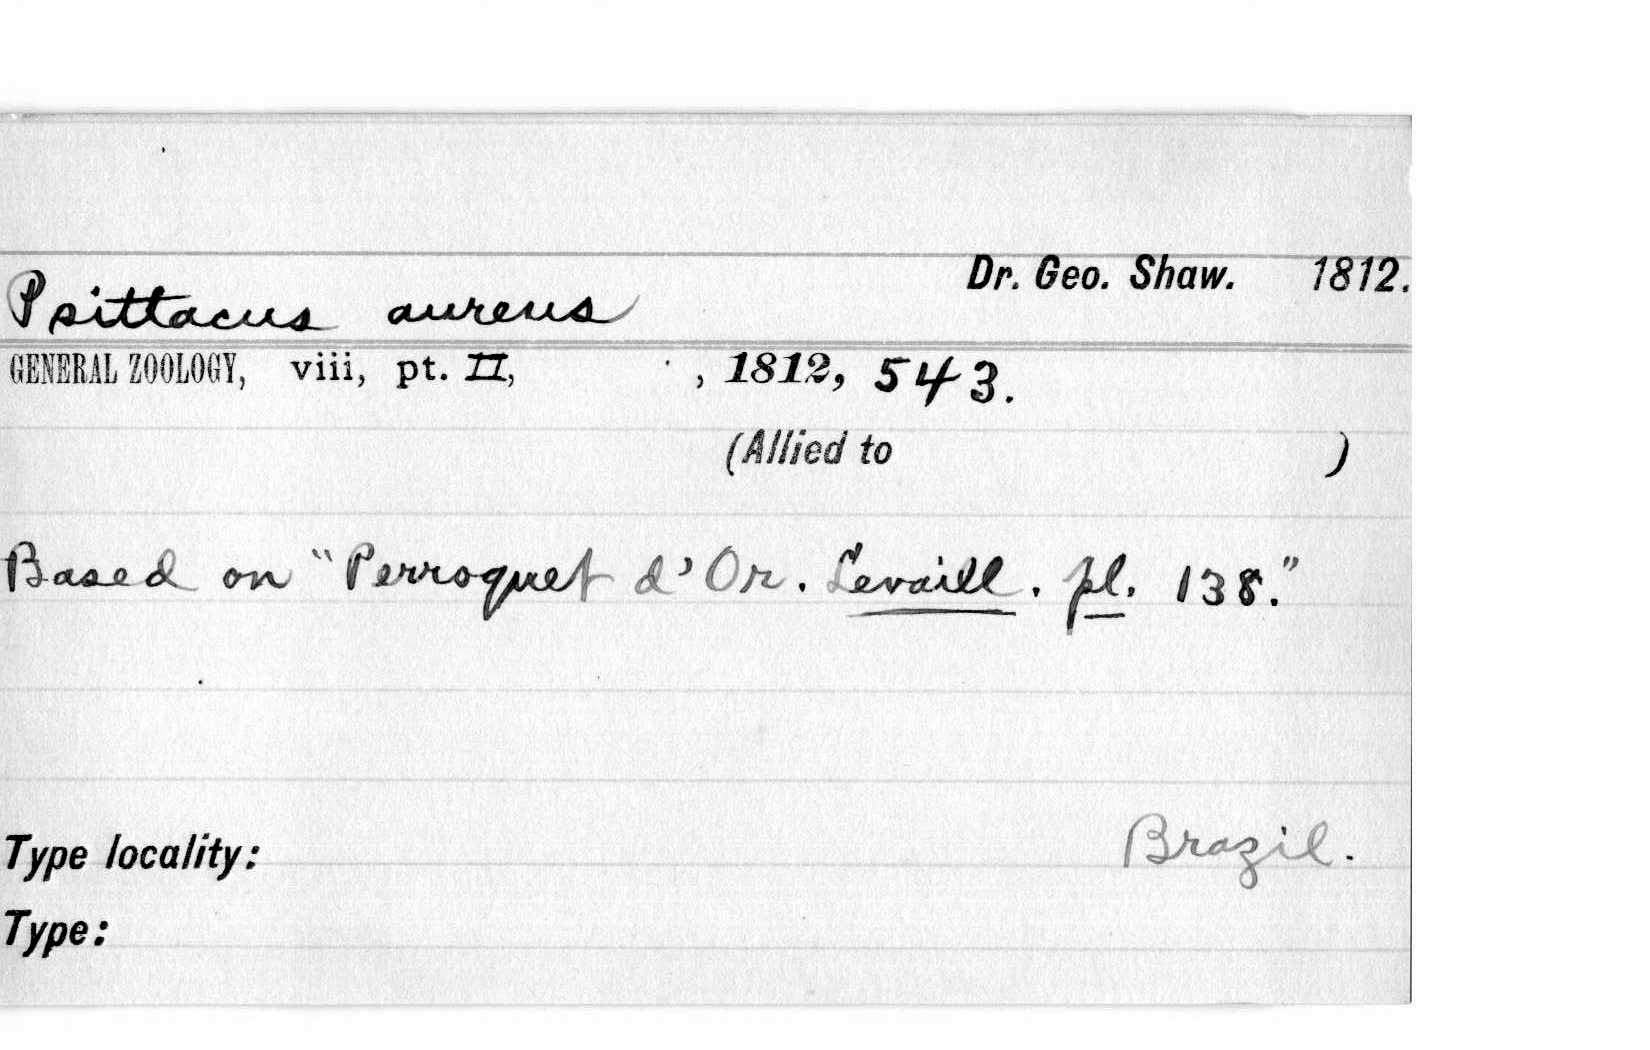 Dr. Geo. Shaw. 1812.
Psittacus aureus
GENERAL ZOOLOGY, viii, pt. II, , 1812, 543.
(Allied to )
Based on "Perroquet d'Or. Levaill. pl. 138."
Type locality: Brazil.
Type: